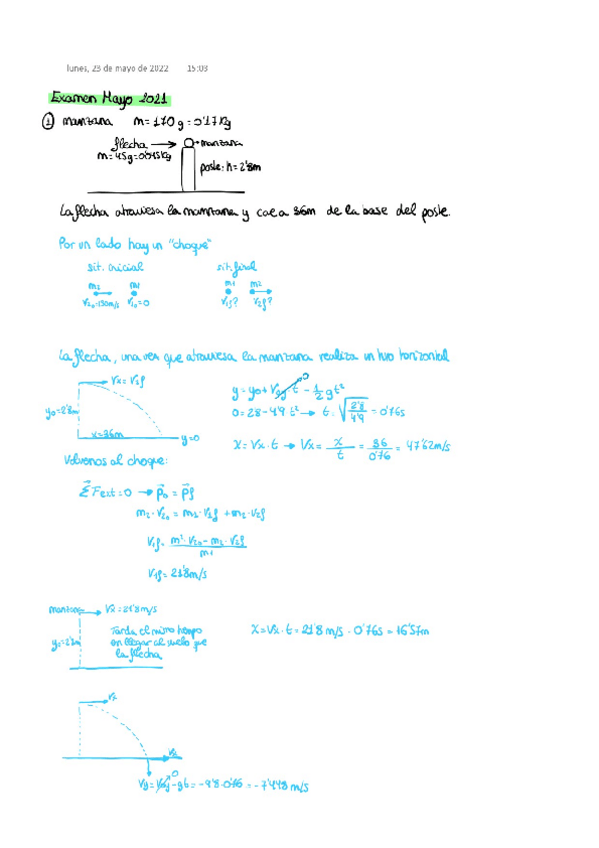 lunes, 23 de mayo de 2022 15:03
Examen Mayo 2021
① manzana m=170g=0'17Kg
flecha → manzana
m=45g=0'045Kg
poste: h=2'8m
La flecha atraviesa la manzana y cae a 36m de la base del poste.
Por un lado hay un "choque"
sit. inicial sit. final
m2 m1 m1 m2
V20=150m/s V10=0 V1f? V2f?
La flecha, una vez que atraviesa la manzana realiza un tiro horizontal
Vx=V2f
y0=2'8m
x=36m
y=0
y=y0+V0y·t-½gt² 0
0=2'8-4'9t² → t=√(2'8/4'9)=0'76s
X=Vx·t → Vx=x/t=36/0'76=47'62m/s
Volvemos al choque:
ΣFext=0 → p0=pf
m2·V20=m1·V1f+m2·V2f
V1f=(m2·V20-m2·V2f)/m1
V1f=21'8m/s
manzana Vx=21'8m/s
y0=2'8m
Tarda el mismo tiempo
en llegar al suelo que
la flecha
X=Vx·t=21'8m/s·0'76s=16'57m
Vx
Vx
Vy=V0y-gt=-9'8·0'76=-7'448m/s 0